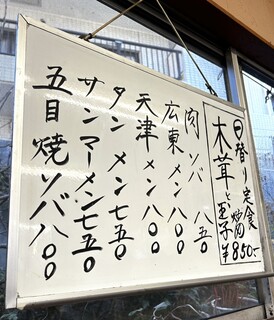 日替り定食
木茸と玉子炒め
¥850-
肉ソバ 八五〇
広東メン 八〇〇
天津メン 八〇〇
タンメン 七五〇
サンマーメン 七五〇
五目焼ソバ 八〇〇